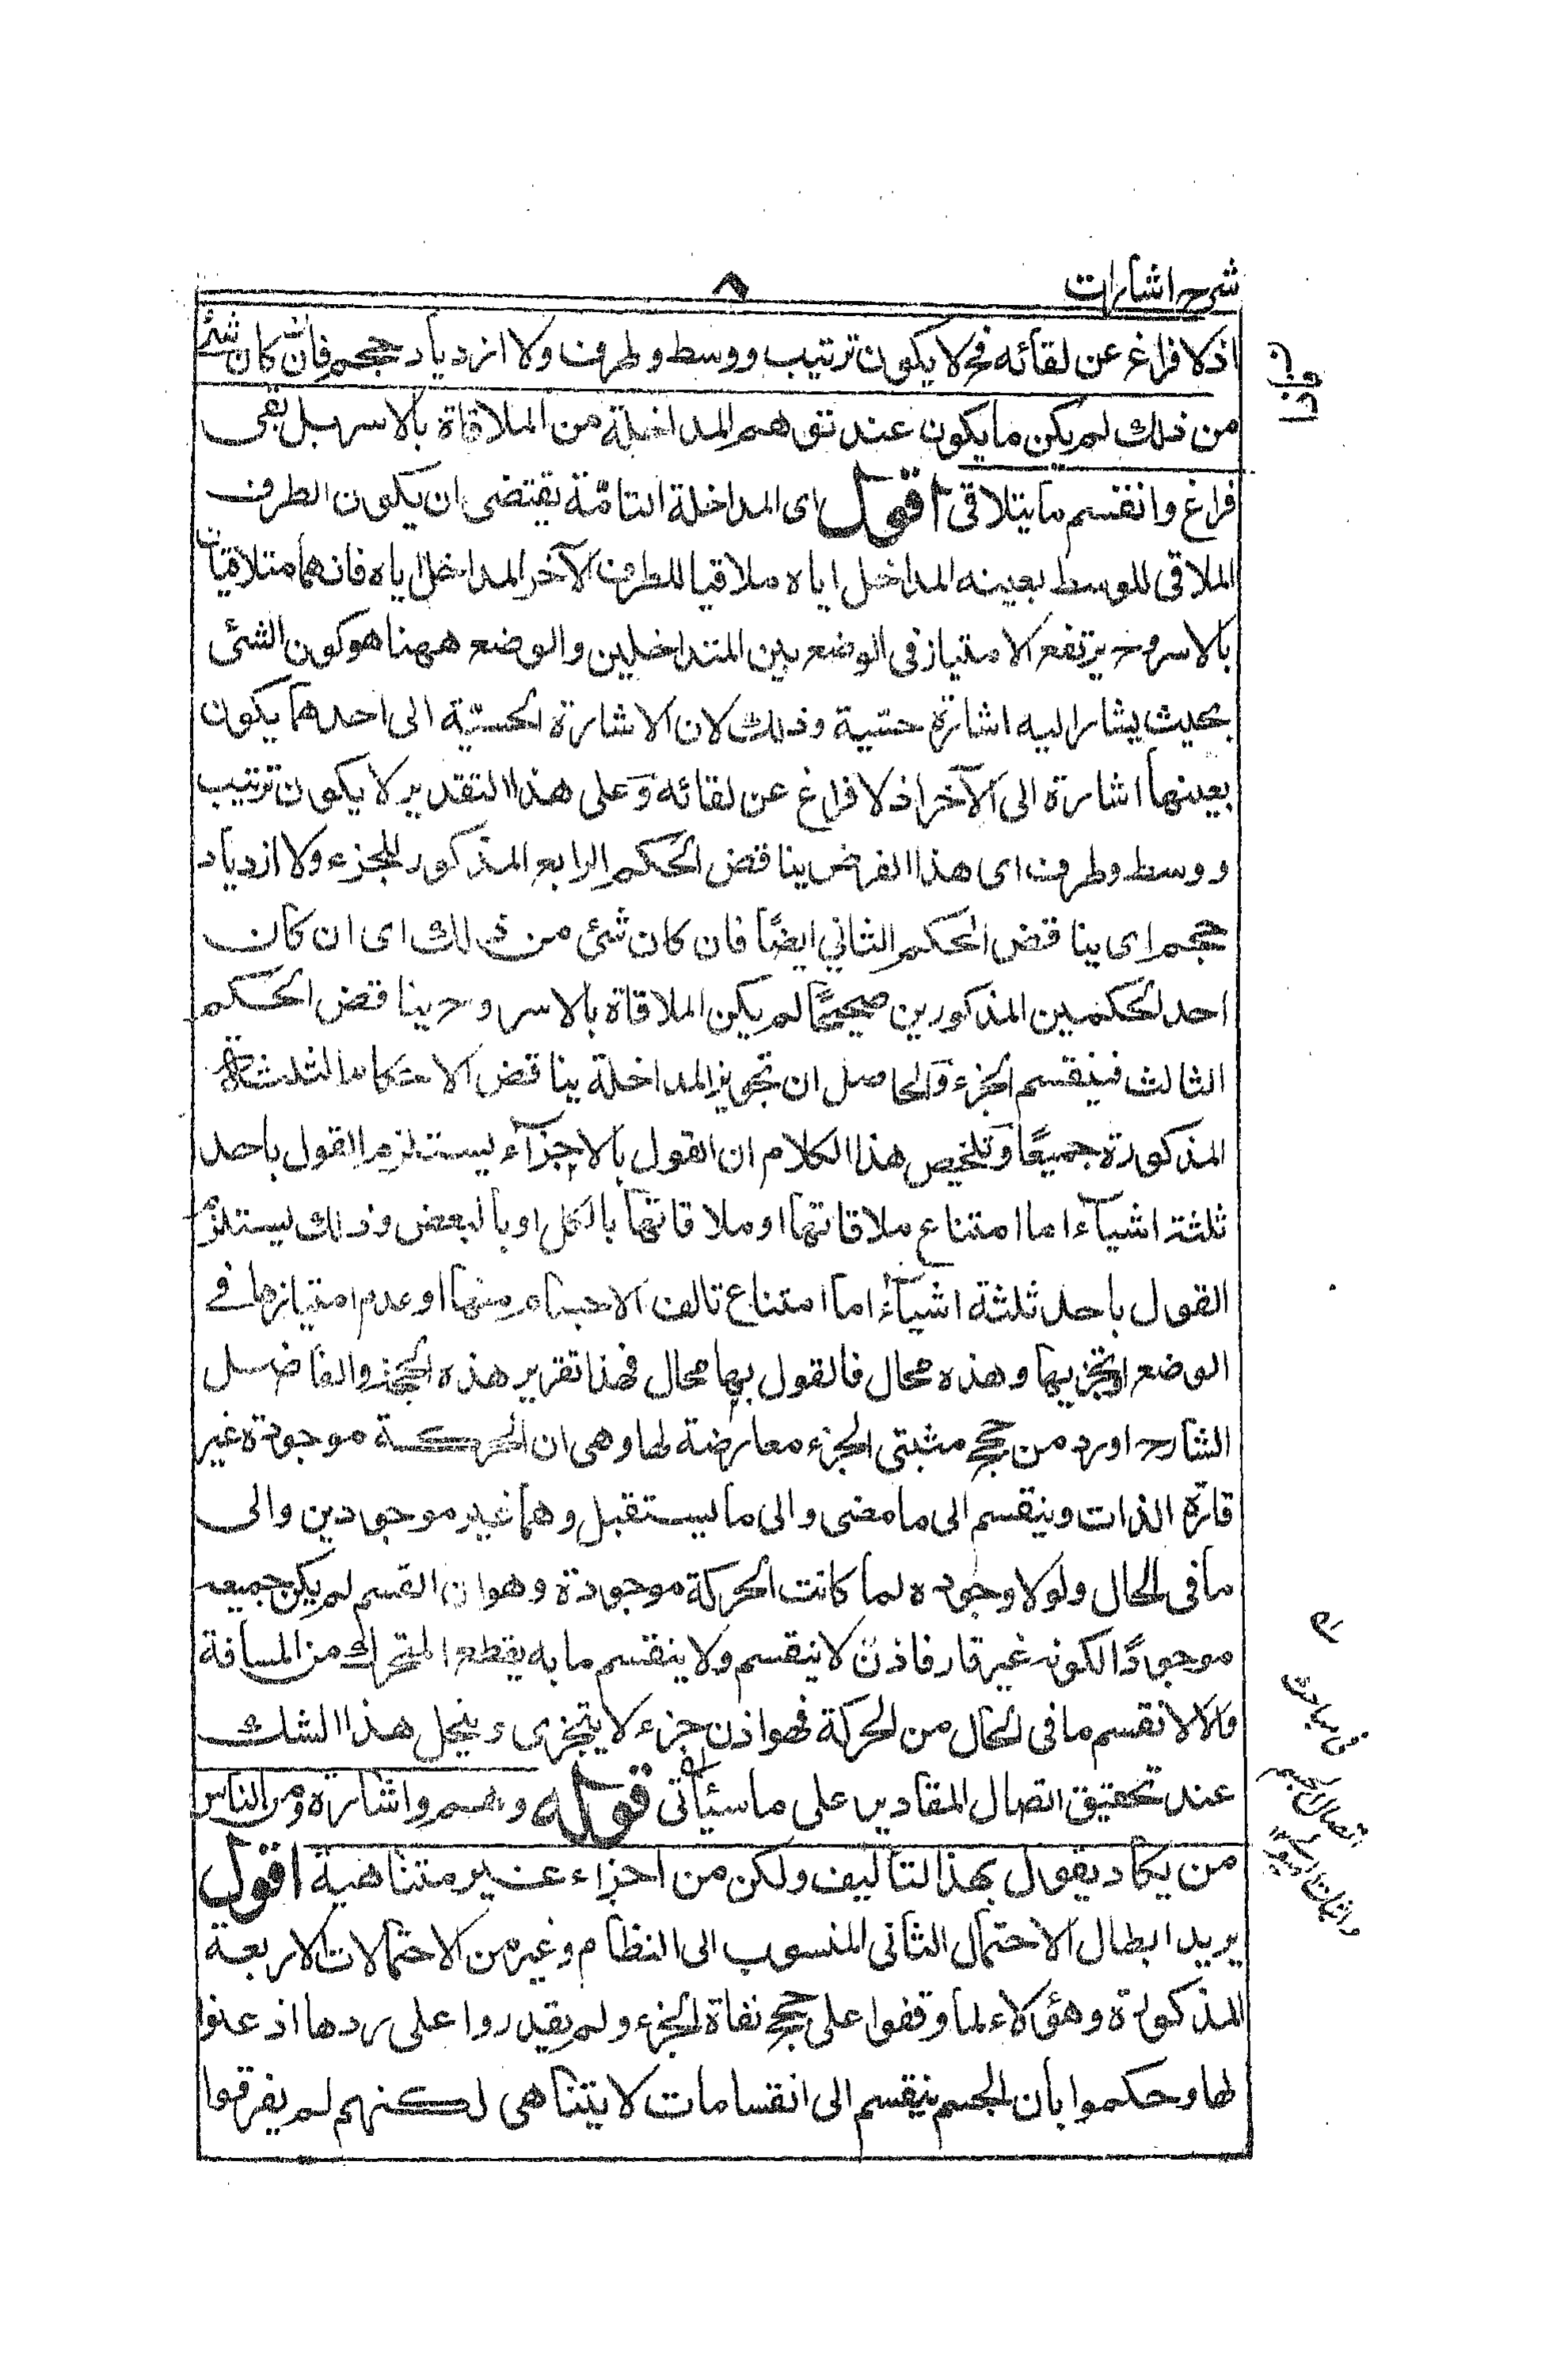 شرح اشارات
٨
اذ لا فراغ عن لقائه فح لا يكون ترتيب ووسط وطرف ولا ازدياد حجم فان كان شئ
من ذلك لم يكن ما يكون عند توهم المداخلة من الملاقاة بالاسر بل بقى
فراغ وانقسم ما يتلاقى اقول اى المداخلة التامّة يقتضى ان يكون الطرف
الملاقى للوسط بعينه المداخل اياه ملاقيا للطرف الآخر المداخل اياه فانهما متلاقيان
بالاسر وح يرتفع الامتياز فى الوضع بين المتداخلين والوضع ههنا هو كون الشئ
بحيث يشار اليه اشارة حسّية وذلك لان الاشارة الحسيّة الى احدهما يكون
بعينها اشارة الى الآخر اذ لا فراغ عن لقائه وعلى هذا التقدير لا يكون ترتيب
ووسط وطرف اى هذا الفرض يناقض الحكم الرابع المذكور للجزء ولا ازدياد
حجم اى يناقض الحكم الثاني ايضًا فان كان شئ من ذلك اى ان كان
احد الحكمين المذكورين صحيحًا لم يكن الملاقاة بالاسر وح يناقض الحكم
الثالث فينقسم الجزء والحاصل ان تجويز المداخلة يناقض الاحكام الثلثة
المذكورة جميعًا وتلخيص هذا الكلام ان القول بالاجزآء يستلزم القول باحد
ثلثة اشيآء اما امتناع ملاقاتها او ملاقاتها بالكل او بالبعض وذلك يستلزم
القول باحد ثلثة اشيآء اما امتناع تالف الاجسام منها او عدم امتيازها فى
الوضع او تجزيها وهذه محال فالقول بها محال فهذا تقرير هذه الحجة والفاضل
الشارح اورد من حجج مثبتى الجزء معارضة لها وهى ان الحركة موجودة غير
قارّة الذات وينقسم الى ما مضى والى ما يستقبل وهما غير موجودين والى
ما فى الحال ولو لا وجوده لما كانت الحركة موجودة وهو ان القسم لم يكن جميعه
موجودًا لكونه غير قار فاذن لا ينقسم ولا ينقسم ما به يقطع المتحرك من المسافة
والا لانقسم ما فى الحال من الحركة فهو اذن جزء لا يتجزى وينحل هذا الشك
عند تحقيق اتصال المقادير على ما سيأتى قوله وهم واشارة ومن الناس
من يكاد يقول بهذا التأليف ولكن من اجزاء غير متناهية اقول
يريد ابطال الاحتمال الثانى المنسوب الى النظام وغيره من الاحتمالات الاربعة
المذكورة وهؤلاء لما وقفوا على حجج نفاة الجزء ولم يقدروا على ردها اذعنوا
لها وحكموا بأن الجسم ينقسم الى انقسامات لا يتناهى لكنهم لم يفرقوا